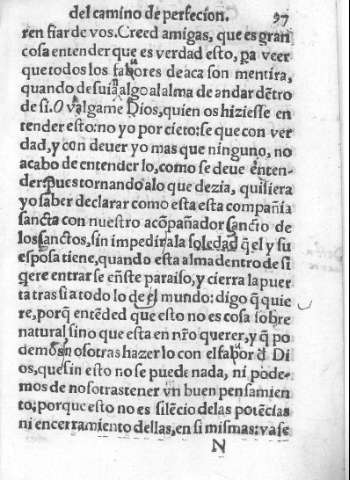 del camino de perfecion. 97
ren fiar de vos. Creed amigas, que es gran
cosa entender que es verdad esto, pa veer
que todos los fabores de aca son mentira,
quando desuiā algo al alma de andar dētro
de si. O valgame Dios, quien os hiziesse en
tender esto: no yo por cieto: se que con ver
dad, y con deuer yo mas que ninguno, no
acabo de entender lo, como se deue enten-
der: pues tornando a lo que dezia, quisiera
yo saber declarar como esta esta compañia
sancta con nuestro acōpañador sancto de
los sanctos, sin impedir a la soledad q̄ el y su
esposa tiene, quando esta alma dentro de si
q̄ere entrar se eñste paraiso, y cierra la puer
ta tras si a todo lo del mundo: digo q̄ quie
re, porq̄ entēded que esto no es cosa sobre
natural sino que esta en nr̄o querer, y q̄ po
demos nosotras hazer lo con el fabor đ Di
os, que sin esto no se puede nada, ni pode-
mos de nosotras tener vn buen pensamien
to: porque esto no es silēcio delas potēcias
ni encerramiento dellas, en si mismas: vase
N